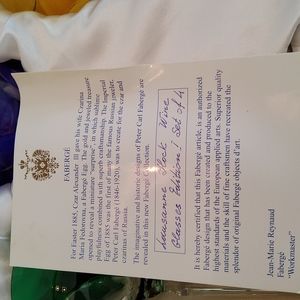 FABERGÉ
For Easter 1885, Czar Alexander III gave his wife Czarina
Maria Fedorovna, a Fabergé Egg. The gold and jeweled treasure
opened to reveal a miniature "surprise", in which sublime
playfulness combined with superb craftsmanship. The Imperial
Egg of 1885 was the first of many the famous Russian jeweler,
Peter Carl Fabergé (1846-1920), was to create for the czar and
czarinas of Russia.
The imaginative and historic designs of Peter Carl Fabergé are
revealed in this new Fabergé collection.
Lausanne Hock Wine
Glasses Edition! Set of 4
It is hereby certified that this Fabergé article, is an authorized
Fabergé design that has been created and produced to the
highest standards of the European applied arts. Superior quality
materials and the skill of fine craftsmen have recreated the
splendor of original Fabergé objects of art.
Jean-Marie Reynaud
Fabergé
"Workmaster"